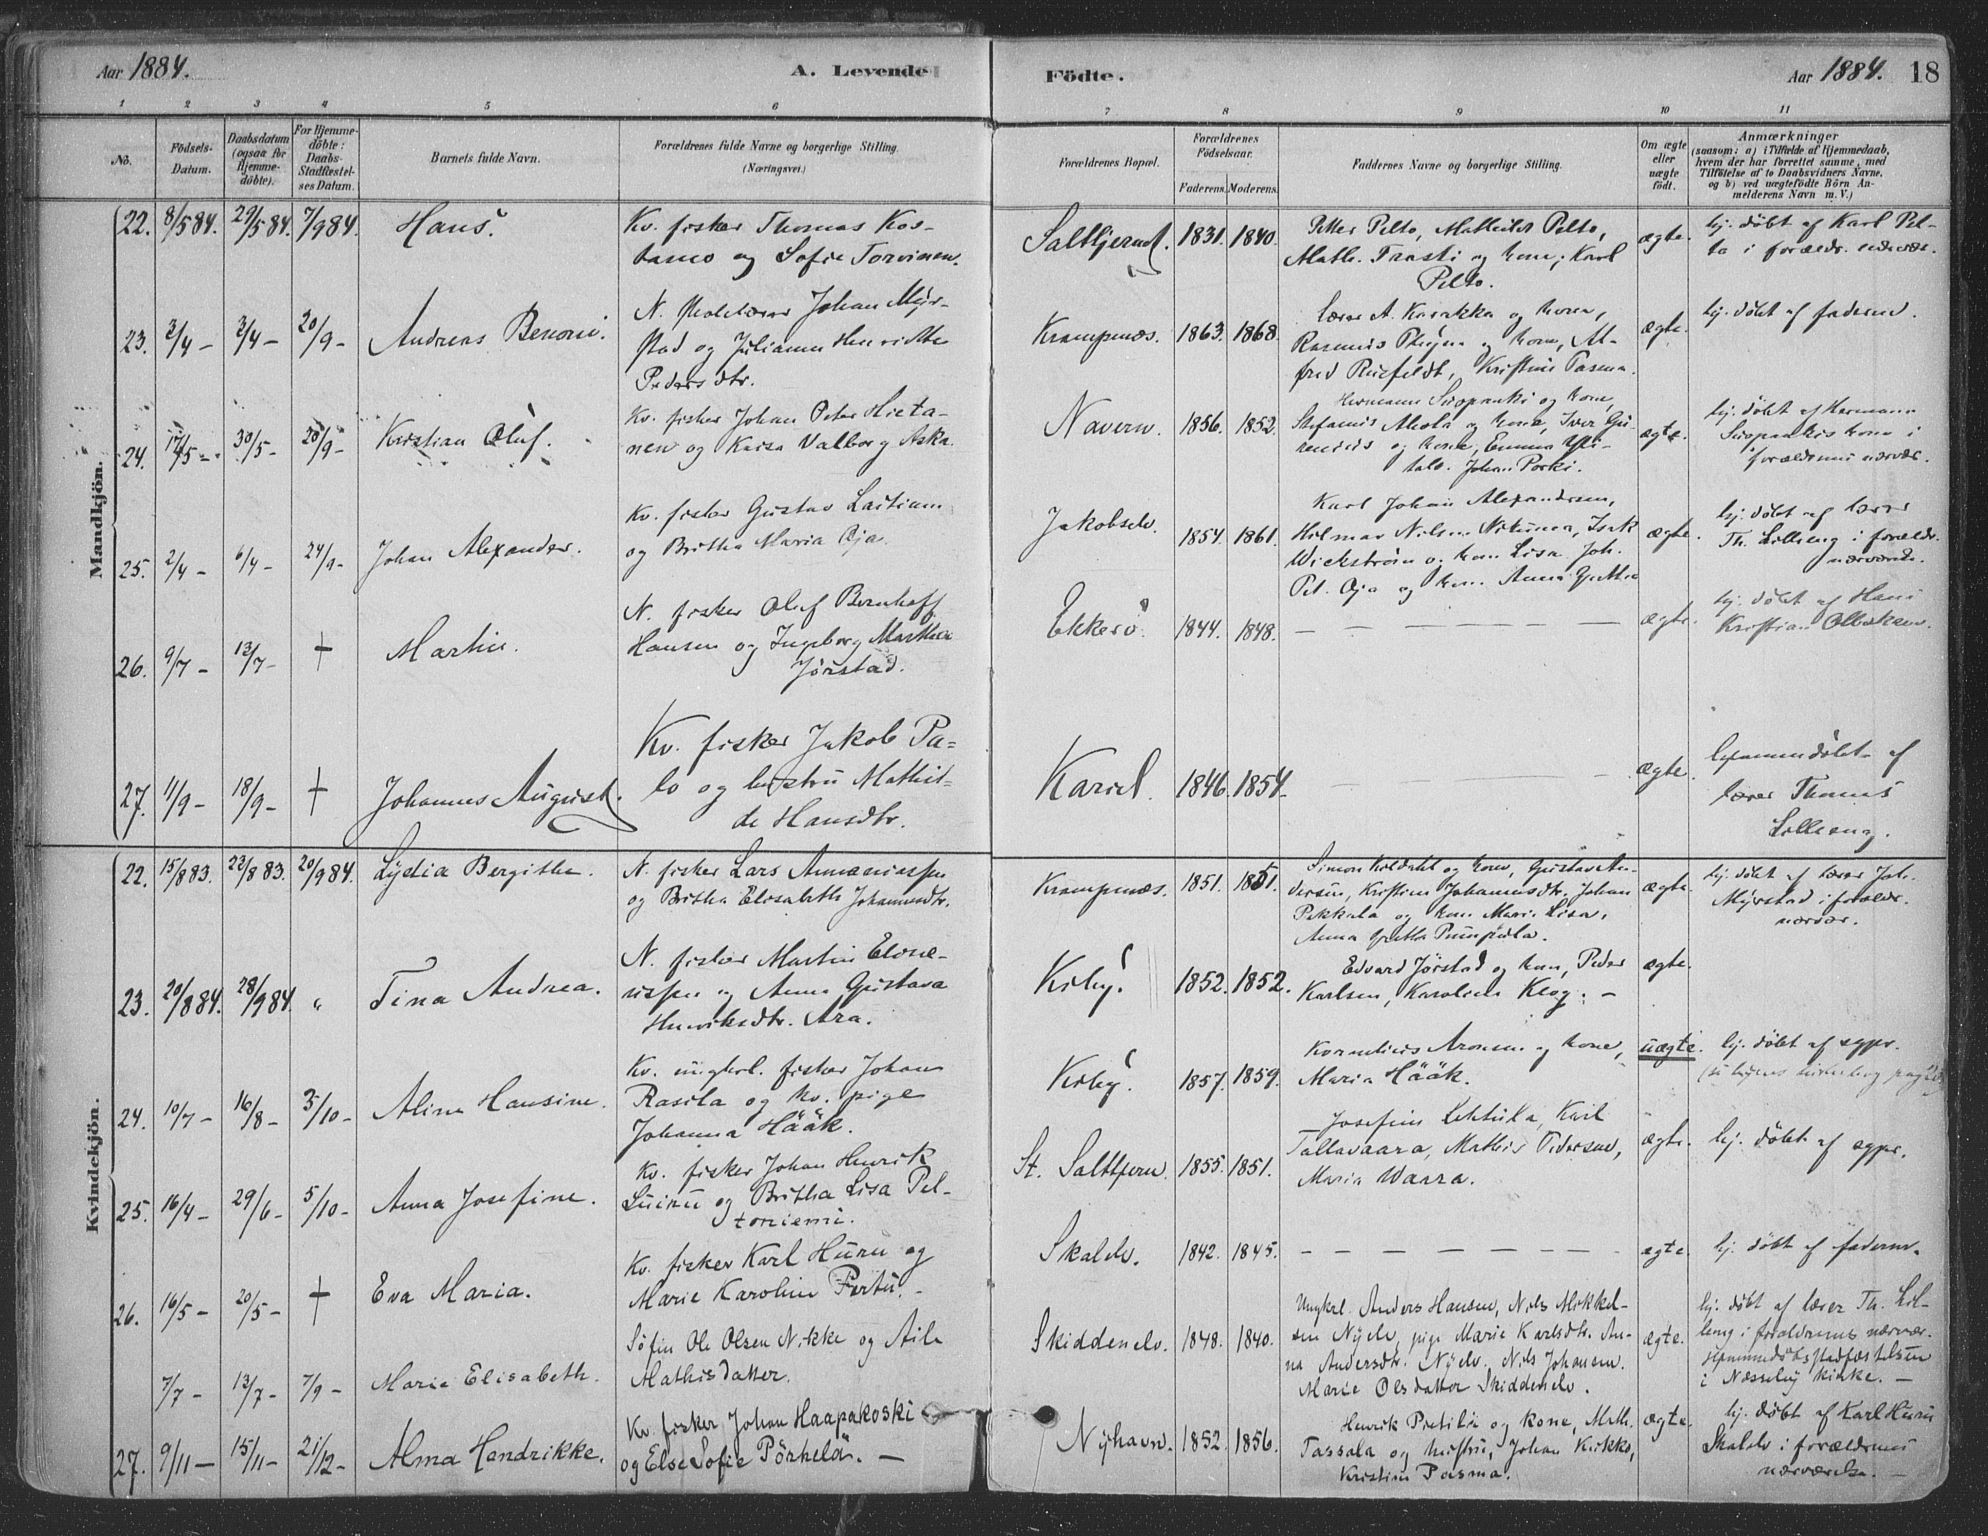 Aar 1884. A. Levende
Födte. Aar 1884. 18
1 2 3 4 5 6
7 8 9 10 11
No.
Födsels-
Datum.
Daabsdatum
(ogsaa for
Hjemme-
döbte).
For Hjemme-
döbte:
Daabs-
Stadfæstel-
ses Datum.
Barnets fulde Navn.
Forældrenes fulde Navne og borgerlige Stilling.
(Næringsvei.)
Forældrenes Bopæl.
Forældrenes
Födselsaar.
Faderens. Moderens.
Faddernes Navne og borgerlige Stilling.
Om ægte
eller
uægte
født.
Anmærkninger
(saasom: a) i Tilfælde af Hjemmedaab,
hvem der har forrettet samme, med
Tilföielse af to Daabsvidners Navne,
og b) ved uægtefödte Börn An-
melderens Navn m. V.)
Mandkjön.
22. 8/5 84. 29/5 84. 7/9 84. Hans.
Kv. fisker Thomas Kos-
tamo og Sofie Torvinen.
1831. 1840.
Petter Pelto, Mathilde Pelto,
Math. Trasti og kone, Karl
Pelto.
ægte.
hj. döbt af Karl Pel-
to i forældr. nærvær.
23. 2/4 - 20/9 - Andreas Benoni.
Johan Myr-
stad og Julianne Henriette
Pedersdtr.
Krampenæs. 1863. 1868.
Lærer A. Karakka og kone,
og kone, Al-
fred Kristine Pasma.
ægte.
hj. döbt af faderen.
24. 17/5 - 30/5 - 20/9 - Kristian Oluf.
Kv. fisker Johan Peter Hieta-
nen og Kaisa Valborg Aska.
Navern. 1856. 1852.
Hermann Suopanki og kone,
og kone, Iver
og kone, Emma
Johan Porki.
ægte.
hj. döbt af Hermann
Suopankis kone i
forældrenes nærvær.
25. 2/4 - 6/4 - 24/9 - Johan Alexander.
Kv. fisker Gustav
og Britha Maria Oja.
Jakobselv 1854. 1861.
Karl Johan Alexandersen,
Hilmar Nilsen Isak
Wickström o. kone Lisa. Joh.
Pet. Oja og kone Anna Gretha
ægte.
hj. döbt af lærer
Th. Lilleeng i forældr.
nærværelse.
26. 9/7 - 13/7 - + Martin.
N. fisker Oluf Bernhoff
Hansen og Ingeborg Marthea
Jörstad.
Ekkerö. 1844. 1848. — — — — — — —
ægte.
hj. döbt af Hans
Kristian
27. 11/9 - 18/9 - + Johannes August.
Kv. fisker Jakob Pa-
lo og hustru Mathil-
de Hansdtr.
Kariel. 1846. 1854.
ægte.
hjemmedöbt af
lærer Thomas
Lilleeng.
Kvindekjön.
22. 15/8 83. 22/8 83. 20/9 84. Lydia Bergithe.
N. fisker Lars Annaniassen
og Britha Elisabeth Johannesdtr.
Krampenæs. 1851. 1851.
Simon Koldahl og kone, Gustav An-
dersen, Kristine Johannesdtr. Johan
Pekkala og kone Maria Lisa,
Anna Gretha
ægte.
hj. döbt af lærer Joh.
Myrstad i forældr.
nærvær.
23. 20/8 84. 28/9 84. " Tina Andrea.
N. fisker Martin
og Anna Gustava
Henriksdtr. Ara.
Kiby. 1852. 1852.
Edvard Jörstad og kone, Peder
Karlsen, Karoline Klog. —
ægte.
24. 10/7 - 16/8 - 5/10 - Aline Hansine.
Kv. ungkrl. fisker Johan
Rasila og kv. pige
Johanna Hääk.
Kiby. 1857. 1859.
Kornelius Aronsen og kone,
Maria Hääk.
uægte.
hj. döbt af sgpr.
25. 16/4 - 29/6 - 5/10 - Anna Josefine.
Kv. fisker Johan Henrik
Luiru og Britha Lisa Pel-
toniemi.
St. Saltfjern. 1855. 1851.
Josefine Lehtula, Karl
Tallavaara, Mathis Pedersen,
Maria Waara.
ægte.
hj. döbt af sgpr.
26. 16/5 - 20/5 - + Eva Maria.
Kv. fisker Karl Huru og
Marie Karoline Pertu. -
Skalelv. 1842. 1845. — — — — — — —
ægte.
hj. döbt af faderen.
7/7 - 13/7 - 7/9 - Marie Elisabeth.
Söfin Ole Olsen Nikke og Aile
Mathisdatter.
Skiddenelv. 1848. 1840.
Ungkrl. Anders Hansen, Nils Mikkel-
sen Nyelv, pige Marie Karlsdtr. An-
na Andersdtr. Nyelv. Nils Johansen.
Marie Olsdatter Skiddenelv.
ægte.
hj. döbt af lærer Th. Lil-
leng i forældrenes nærvær.
Hjemmedaabsstadfæstelsen
i Næsseby kirke. —
27. 9/11 - 15/11 - 21/12 - Alma Hendrikke.
Kv. fisker Johan Haapakoski
og Else Sofie Pörhelä. —
Nyhavn. 1852. 1856.
Henrik og kone, Math.
Tassala og hustru, Johan Kirkko,
Kristine Pasma.
ægte.
hj. döbt af Karl Huru
Skalelv i forældrenes
nærværelse. —